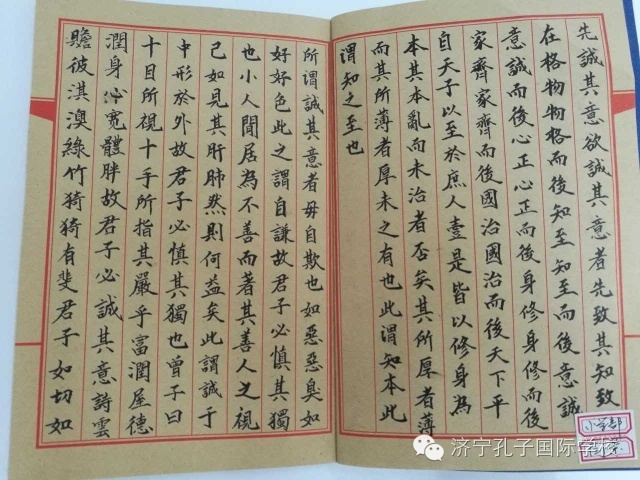 先誠其意欲誠其意者先致其知致
在格物物格而後知至知至而後意誠
意誠而後心正心正而後身修身修而後
家齊家齊而後國治國治而後天下平
自天子以至於庶人壹是皆以修身為
本其本亂而未治者否矣其所厚者薄
而其所薄者厚未之有也此謂知本此
謂知之至也
所謂誠其意者毋自欺也如惡惡臭如
好好色此之謂自謙故君子必慎其獨
也小人閒居為不善而著其善人之視
己如見其肝肺然則何益矣此謂誠于
中形於外故君子必慎其獨也曾子曰
十目所視十手所指其嚴乎富潤屋德
潤身心寬體胖故君子必誠其意詩雲
瞻彼淇澳綠竹猗猗有斐君子如切如
小学部
济宁孔子国际学校